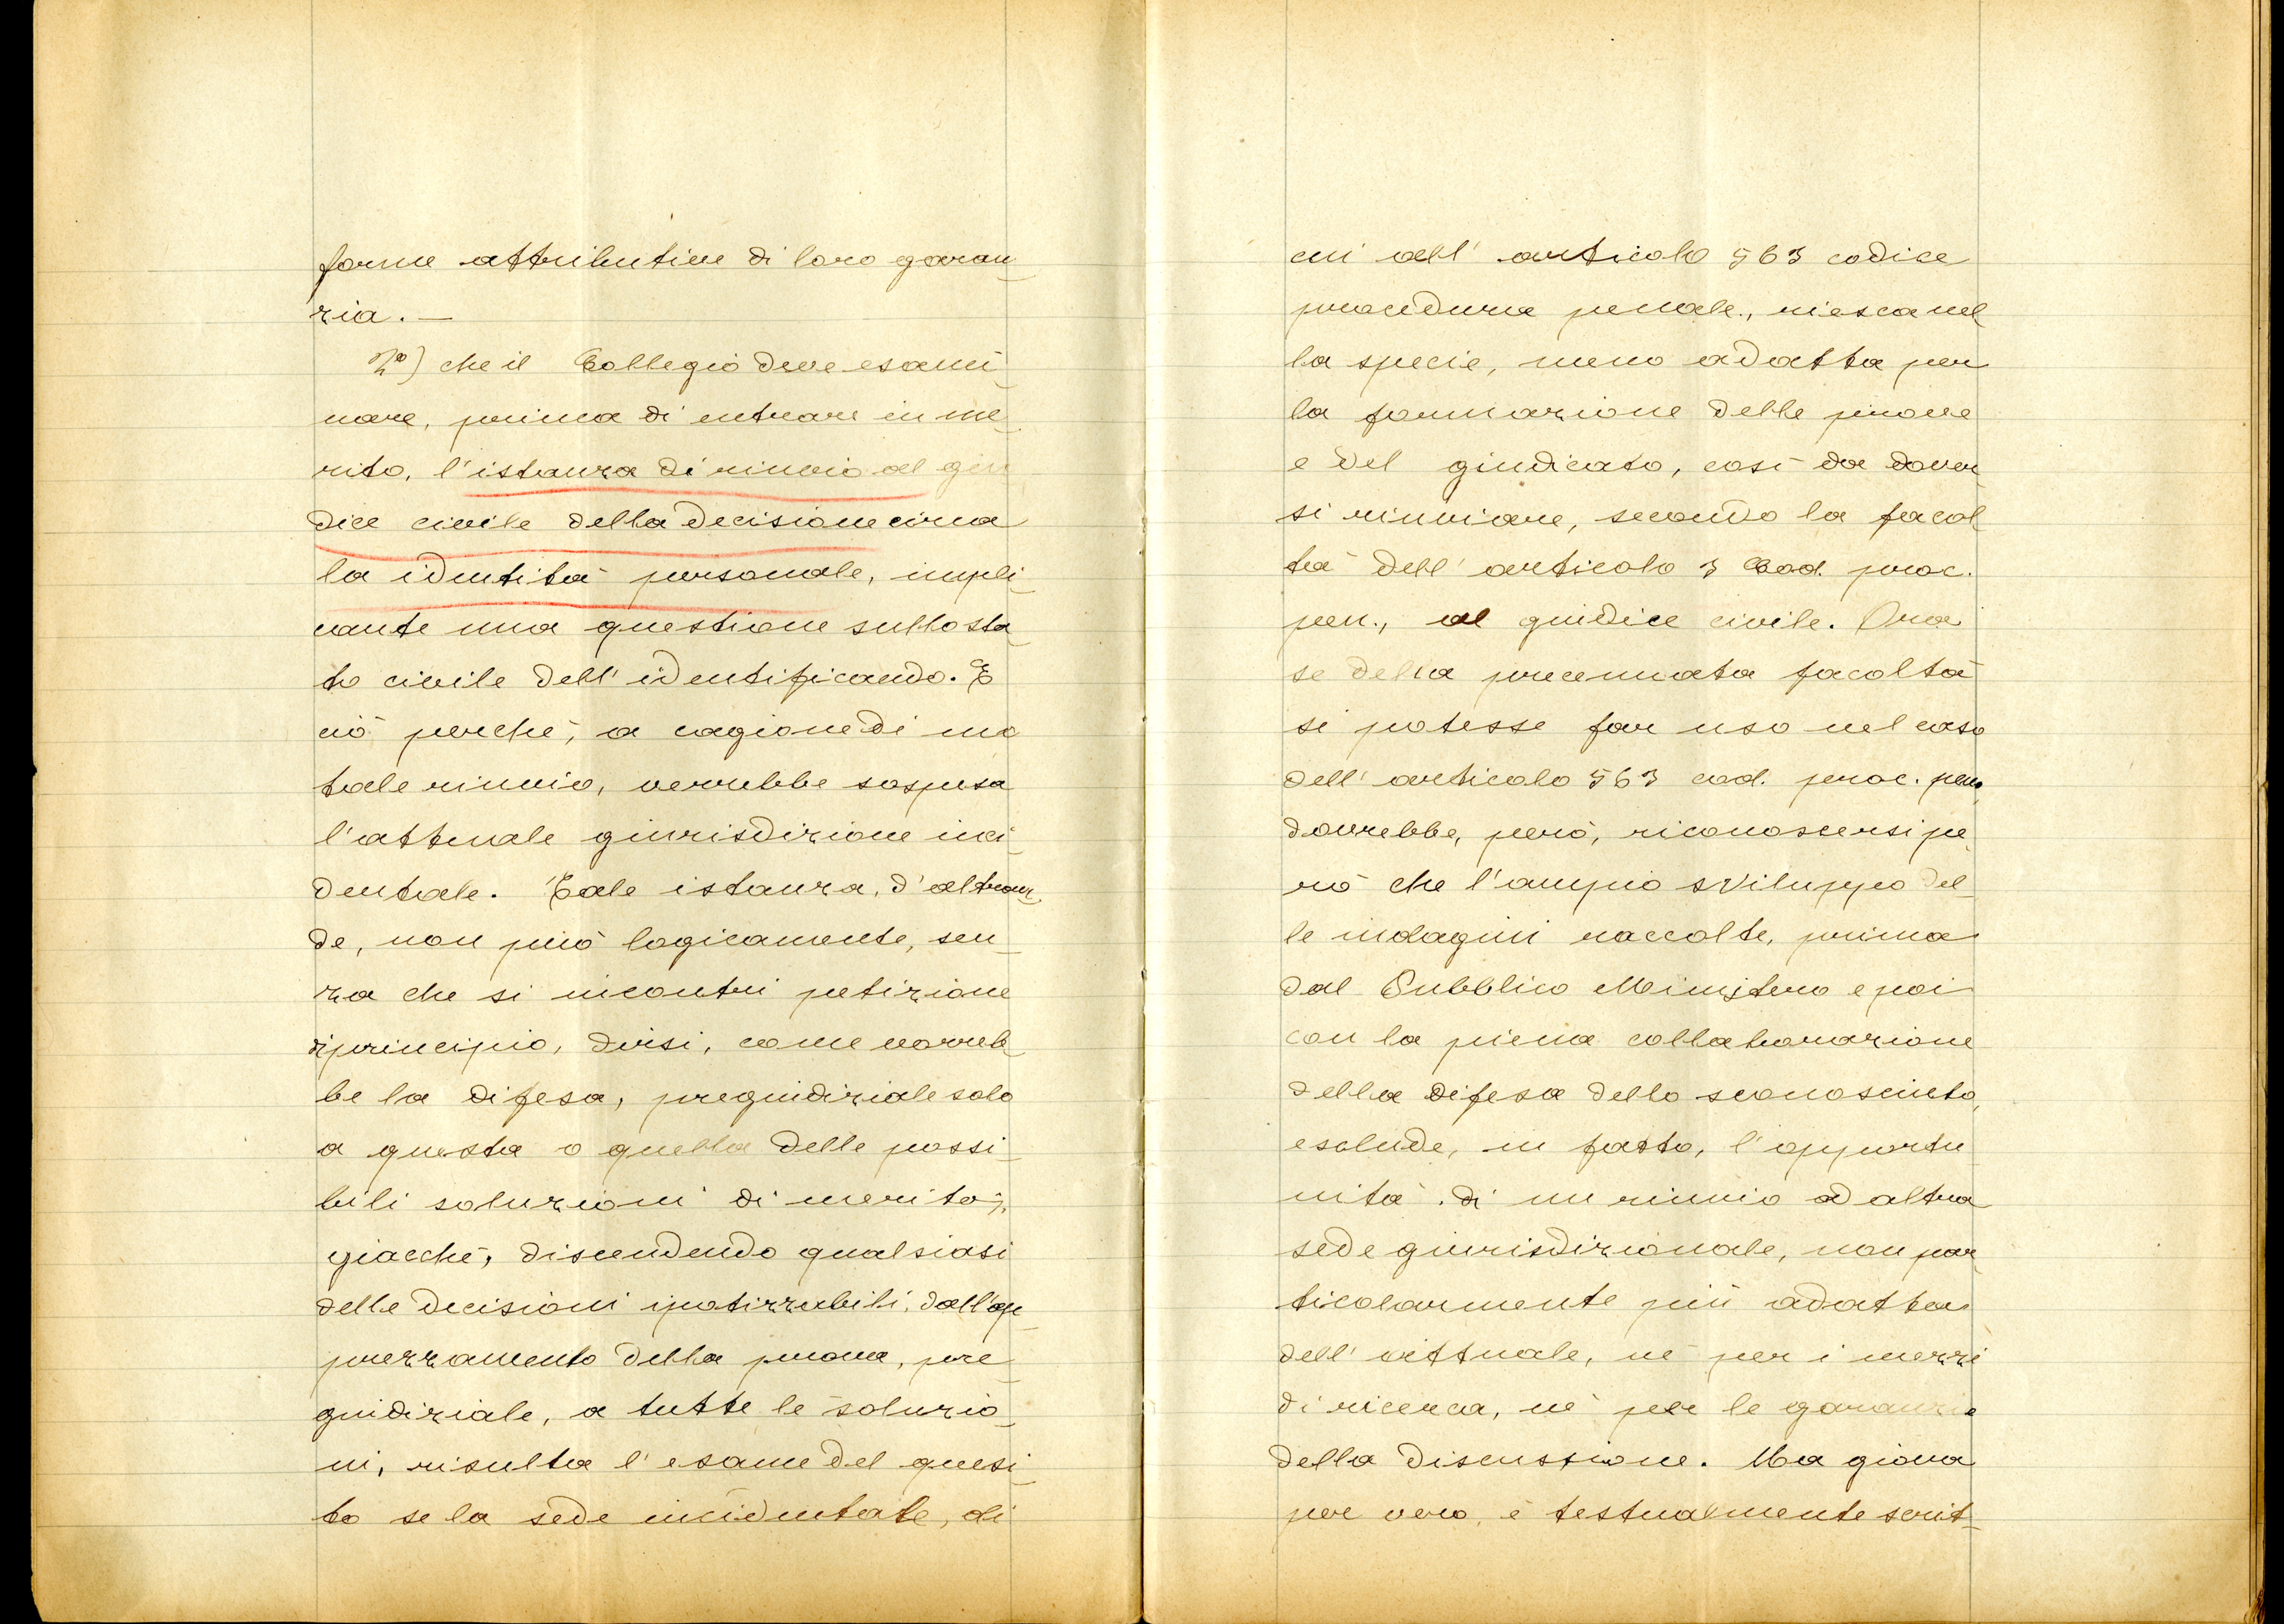 forme attributive di loro garan-
zia. —
2°) che il Collegio deve esami-
nare, prima di entrare in me-
rito, l'istanza di rinvio al giu
dice civile della decisione circa
la identità personale, impli-
cante una questione sullo sta
to civile dell'identificando. E
ciò perchè, a cagione di
tale rinvio, verrebbe sospesa
l'attuale giurisdizione inci-
dentale. Tale istanza, d'altron-
de, non può logicamente, sen-
za che si incontri petizione
di principio, dirsi, come vorreb
be la difesa, pregiudiziale solo
a questa o quella delle possi-
bili soluzioni di merito;
giacchè, discendendo qualsiasi
delle decisioni ipotizzabili, dall'ap-
prezzamento della prova, pre
giudiziale, a tutte le soluzio-
ni, risulta l'esame del quesi-
to se la sede incidentale, di
cui all'articolo 563 codice
procedura penale., riesca nel
la specie, meno adatta per
la formazione delle prove
e del giudicato, così da dover
si rinviare, secondo la facol
tà dell'articolo 3 Cod. proc.
pen., al giudice civile. Ora
se della precennata facoltà
si potesse far uso nel caso
dell'articolo 563 cod. proc. pen.
dovrebbe, però, riconoscersi pe
rò che l'ampio sviluppo del-
le indagini raccolte, prima
dal Pubblico Ministero e poi
con la piena collaborazione
della difesa dello sconosciuto,
esclude, in fatto, l'opportu
nità di un rinvio ad altra
sede giurisdizionale, non par
ticolarmente più adatta
dell'attuale, nè per i mezzi
di ricerca, nè per le garanzie
della discussione. Ma giova
per vero, è testualmente scrit-